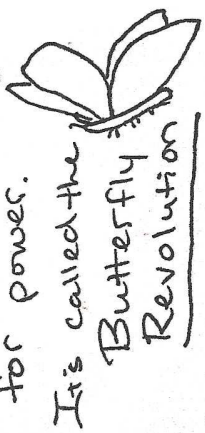 for power.
It is called the
Butterfly
Revolution